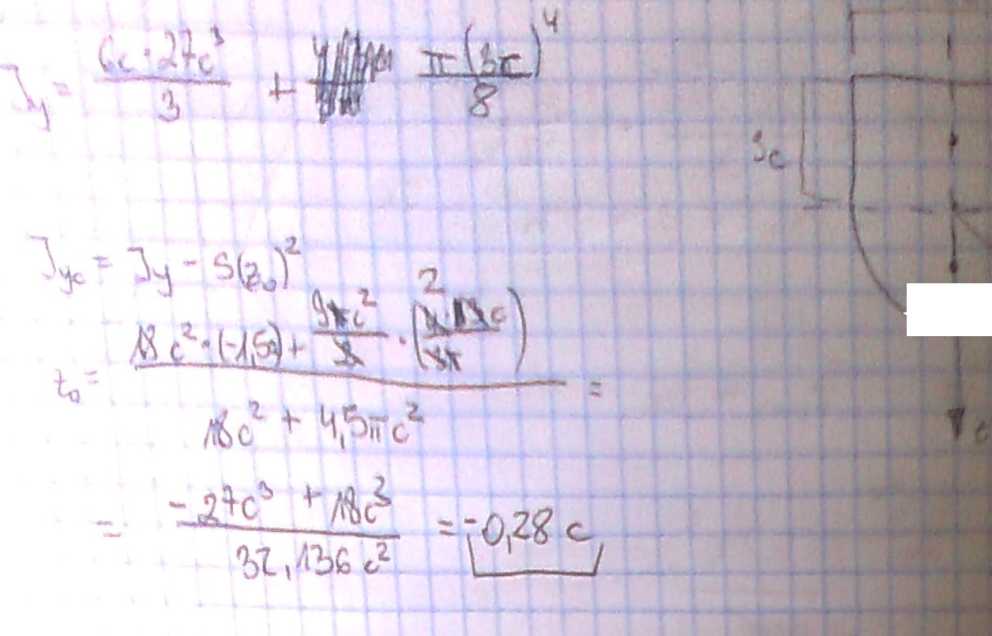 Jy = 6c · 27c³ / 3 + π(3π)⁴ / 8
3c
Jyc = Jy - S(z₀)²
z₀ = 18c² · (-1,5c) + 9πc² / 2 · ( c / 3π) / 18c² + 4,5πc² =
2
= -27c³ + 18c³ / 32,136c² = -0,28 c